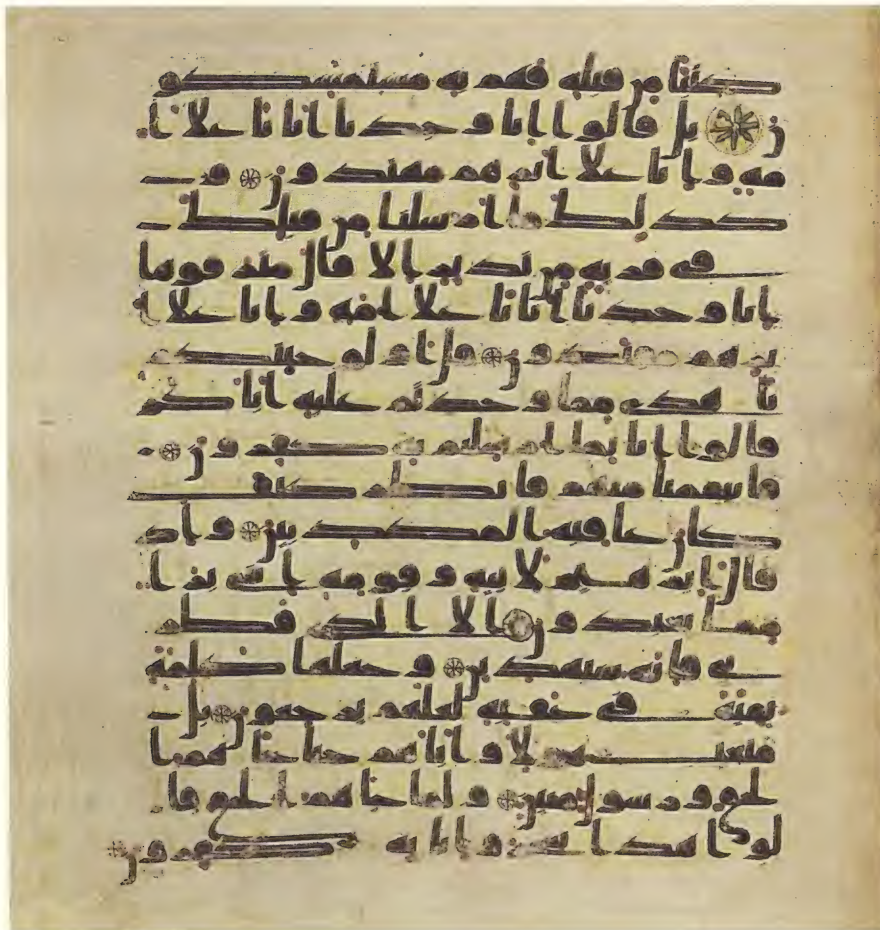 كتبا من قبله فهم به مستمسكو
ن بل قالوا انا وجدنا ابانا على ا
مة وانا على اثرهم مهتدون و
كذلك ما ارسلنا من قبلك
في قرية من نذير الا قال مترفوها
انا وجدنا ابانا على امة وانا على ا
ثرهم مقتدون قل اولو جيتكم
با هدى مما وجدتم عليه اباكم
قالوا انا بما ارسلتم به كفرون
فانتقمنا منهم فانظر كيف
كان عقبة المكذبين واذ
قال ابرهيم لابيه وقومه انني برا
مما تعبدون الا الذي فطر
ني فانه سيهدين وجعلها كلمة
بقية في عقبه لعلهم يرجعون بل
متعت هولا واباهم حتى جاهم ا
لحق ورسول مبين ولما جاهم الحق قا
لوا هذا سحر وانا به كفرون